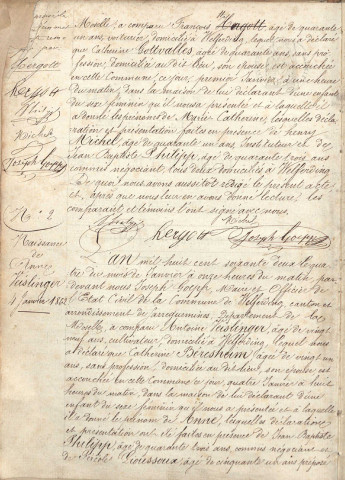 Moselle, a comparu François Hergott, âgé de quarante
un ans, voiturier, domicilié à Welferding, lequel nous a déclaré
que Catherine Dollvalles âgé de quarante ans, sans pro
fession, domiciliée au dit lieu, son épouse, est accouchée
en cette Commune, ce jour, premier Janvier, à une heure
du matin, dans la maison de lui déclarant d'une enfant
du sexe féminin qu'il nous a présentée et à laquelle il
a donné les prénoms de Marie Catherine, lesquelles décla
ration et présentation faites en présence de henry
Michel, âgé de quarante ans, Instituteur et de
Jean Baptiste Philipp, âgé de quarante trois ans
commis négociant, tous deux domiciliés à Welferding
De quoi nous avons aussitôt rédigé le présent acte
et, après que nous leur en avons donné lecture, les
comparant et témoins l'ont signé avec nous.
Hergott
Joseph Goepp
N° 2
Naissance
de
Anne
Feislinger
4 janvier 1862
L'an mil huit cent soixante deux le qua
tre du mois de Janvier à onze heures du matin par
devant nous Joseph Goepp, Maire et Officier de
l'Etat Civil de la Commune de Welferding, canton et
arrondissement de Sarreguemines, Département de la
Moselle, a comparu Antoine Feislinger, âgé de vingt
neuf ans, cultivateur, domicilié à Welferding, lequel nous
a déclaré que Catherine Beresheim, âgée de vingt un
ans, sans profession, domiciliée au dit lieu, son épouse est
accouchée en cette Commune ce jour, quatre Janvier à huit
heures du matin, dans la maison de lui déclarant d'une
enfant du sexe féminin qu'il nous a présentée et à laquelle
il a donné le prénom de Anne, lesquelles déclaration
et présentation ont été faites en présence de Jean Baptiste
Philipp, âgé de quarante trois ans, commis négociant et
de Nicolas Goiessoux, âgé de cinquante un ans, préposé